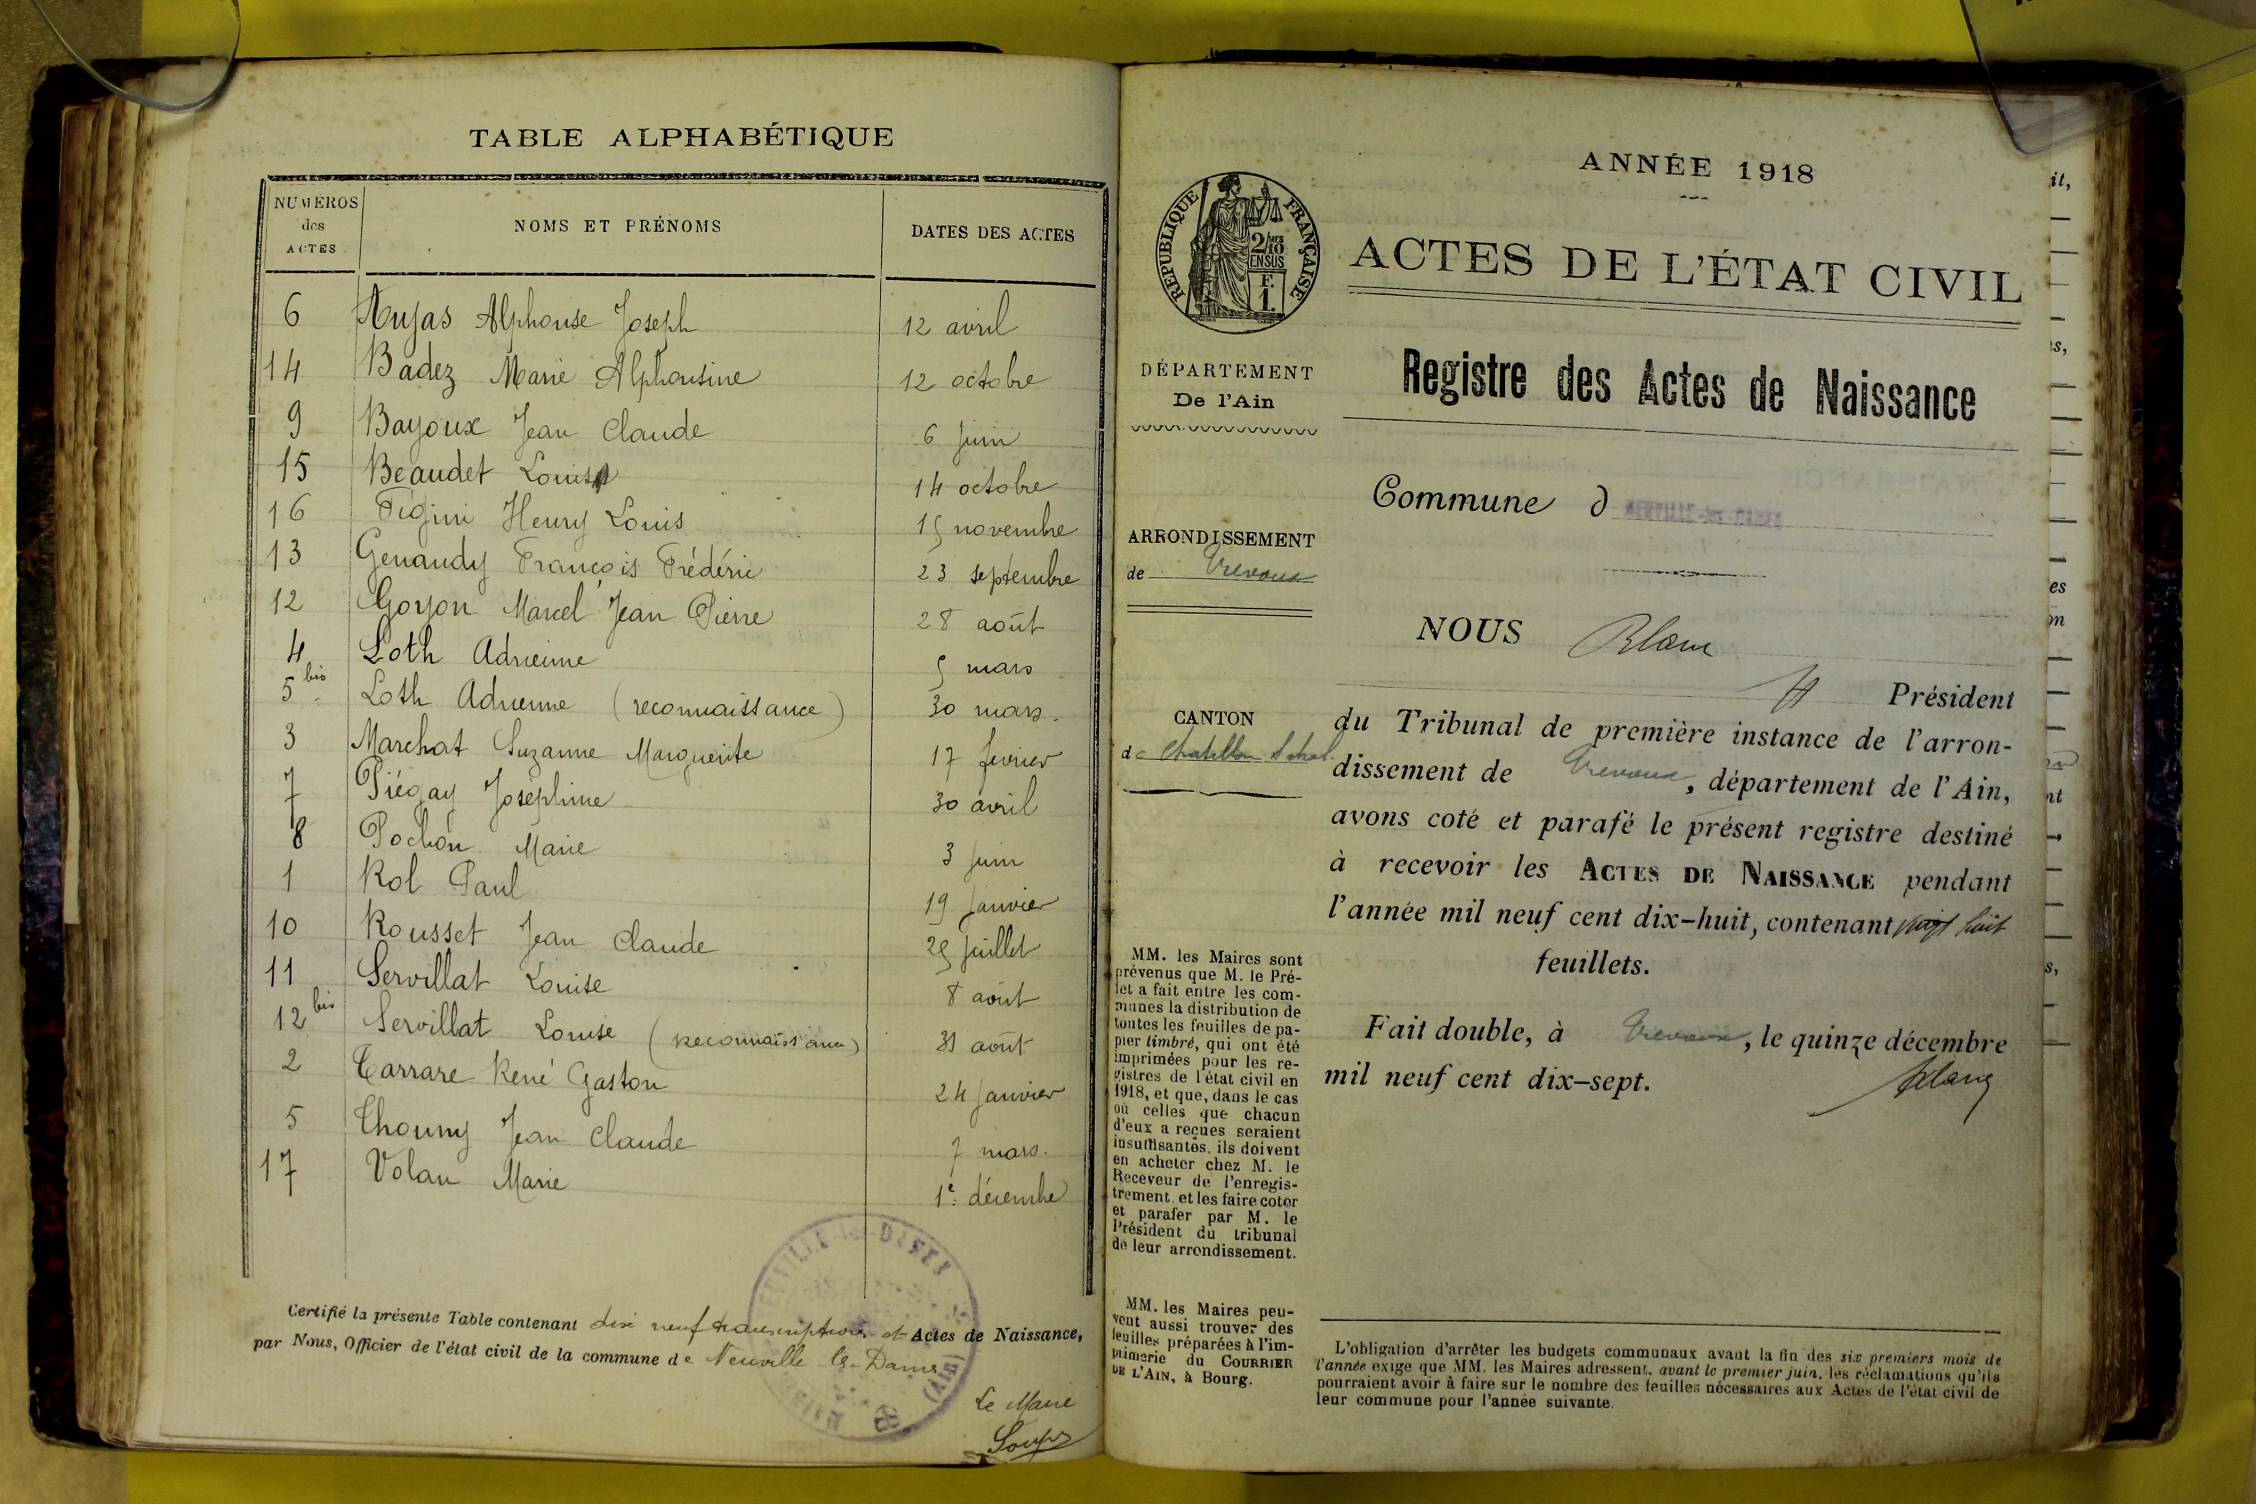 TABLE ALPHABÉTIQUE
NUMÉROS
des
ACTES
NOMS ET PRÉNOMS
DATES DES ACTES
6 Aujas Alphonse Joseph 12 avril
14 Badez Marie Alphonsine 12 octobre
9 Bayoux Jean Claude 6 juin
15 Beaudet Louis 14 octobre
16 Figini Henry Louis 15 novembre
13 Genaudy François Frédéric 23 septembre
12 Goyon Marcel Jean Pierre 28 août
4 Loth Adrienne 5 mars
5 bis Loth Adrienne (reconnaissance) 30 mars.
3 Marchat Suzanne Marguerite 17 février
7 Piégay Joséphine 30 avril
8 Pochon Marie 3 juin
1 Rol Paul 19 janvier
10 Rousset Jean Claude 25 juillet
11 Servillat Louise 8 août
12 bis Servillat Louise (reconnaissance) 31 août
2 Tarrare René Gaston 24 janvier
5 Thouny Jean Claude 7 mars.
17 Volan Marie 1e décembre
Certifié la présente Table contenant dix neuf transcriptions et Actes de Naissance,
par Nous, Officier de l'état civil de la commune de Neuville les Dames
Le Maire
ANNÉE 1918
RÉPUBLIQUE FRANÇAISE
2/10 MES
EN SUS
F.
1.
ACTES DE L'ÉTAT CIVIL
DÉPARTEMENT
De l'Ain
Registre des Actes de Naissance
Commune d
ARRONDISSEMENT
de Trevoux
NOUS Blanc
Président
CANTON
de Chatillon
du Tribunal de première instance de l'arron-
dissement de Trevoux, département de l'Ain,
avons coté et parafé le présent registre destiné
à recevoir les ACTES DE NAISSANCE pendant
l'année mil neuf cent dix-huit, contenant vingt huit
feuillets.
Fait double, à Trevoux, le quinze décembre
mil neuf cent dix-sept.
Blanc
MM. les Maires sont
prévenus que M. le Pré-
fet a fait entre les com-
munes la distribution de
toutes les feuilles de pa-
pier timbré, qui ont été
imprimées pour les re-
gistres de l'état civil en
1918, et que, dans le cas
où celles que chacun
d'eux a reçues seraient
insuffisantes, ils doivent
en acheter chez M. le
Receveur de l'enregis-
trement, et les faire coter
et parafer par M. le
Président du tribunal
de leur arrondissement.
MM. les Maires peu-
vent aussi trouver des
feuilles préparées à l'im-
primerie du COURRIER
DE L'AIN, à Bourg.
L'obligation d'arrêter les budgets communaux avant la fin des six premiers mois de
l'année exige que MM. les Maires adressent, avant le premier juin, les réclamations qu'ils
pourraient avoir à faire sur le nombre des feuilles nécessaires aux Actes de l'état civil de
leur commune pour l'année suivante.